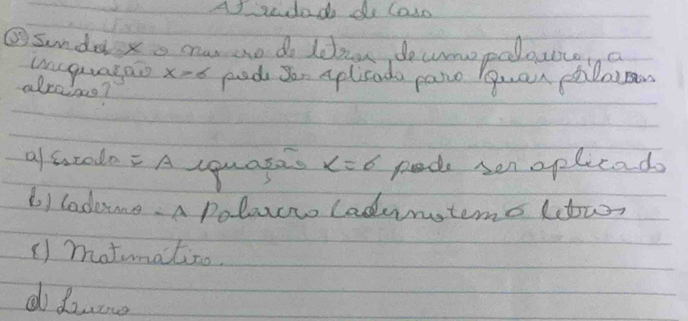 Atividade de Casa
5) Sendo x o numero de letras de uma palavra, a
inequação x=6 pode ser aplicada para quais palavras
abaixo?
a) Escola = A equação x=6 pode ser aplicado
b) Caderno - A Palavra Caderno tem 6 letras
c) Matematica.
d) Livro